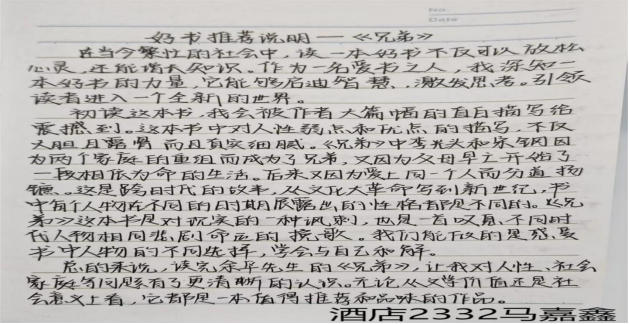 No.
Date
好书推荐说明——《兄弟》
在当今繁忙的社会中，读一本好书不仅可以放松
心灵，还能增长知识。作为一名爱书之人，我深知一
本好书的力量，它能够启迪智慧、激发思考。引领
读者进入一个全新的世界。
初读这本书，我会被作者大篇幅的直白描写给
震撼到。这本书中对人性弱点和优点的描写，不仅
大胆且露骨而且真实细腻。《兄弟》中李光头和宋钢因
为两个家庭的重组而成为了兄弟，又因为父母早亡开始了
一段相依为命的生活。后来又因为爱上同一个人而分道扬
镳。这是跨时代的故事，从文化大革命写到新世纪，书
中有个人物在不同的时期展露出的性格都是不同的。《兄
弟》这本书是对现实的一种讽刺，也是一首叹息不同时
代人物相同悲剧命运的挽歌。我们能做的是感受
书中人物的不同选择，学会与自己和解。
总的来说，读完余华先生的《兄弟》，让我对人性、社会
家庭等问题有了更清晰的认识。无论从文学价值还是社
会意义上看，它都是一本值得推荐和品味的作品。
酒店2332马嘉鑫